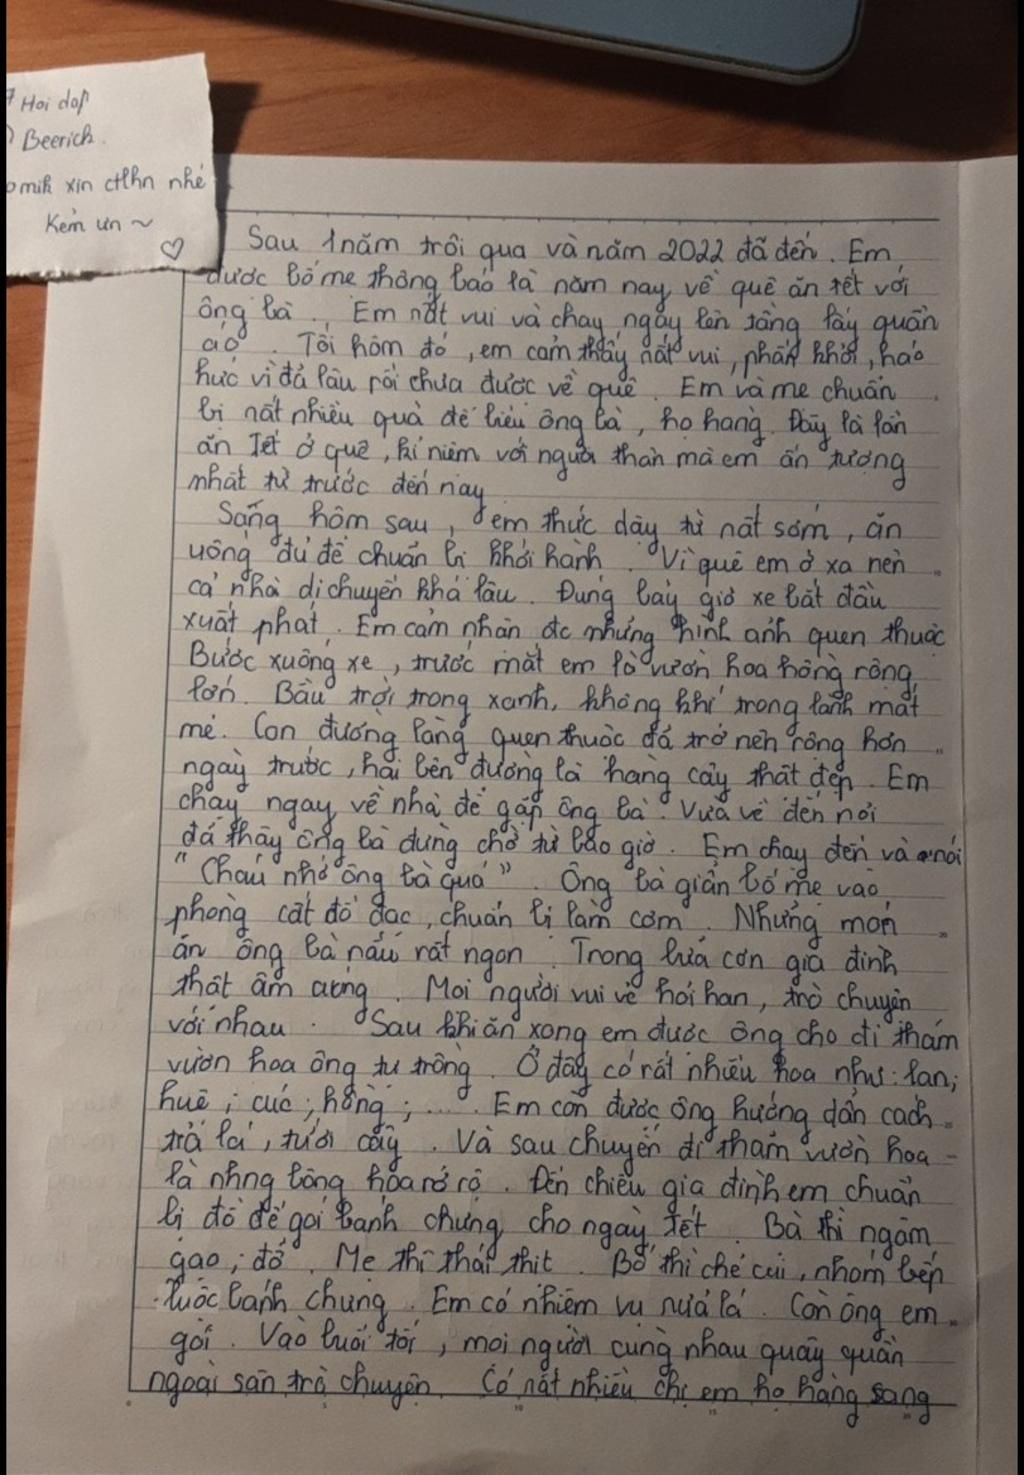 Hoi dap
Beerich.
mik xin ctlhn nhé
Kẻm ưn ~
Sau 1 năm trôi qua và năm 2022 đã đến. Em
được bố mẹ thông báo là năm nay về quê ăn tết với
ông bà. Em nất vui và chạy ngay lên tầng lấy quần
áo. Tối hôm đó, em cảm thấy nất vui, phấn khởi, háo
hức vì đã lâu rồi chưa được về quê. Em và mẹ chuẩn
bị nất nhiều quà để biếu ông bà, họ hàng. Đây là lần
ăn Tết ở quê, kỉ niệm với người thân mà em ấn tượng
nhất từ trước đến nay
Sáng hôm sau, em thức dậy từ nất sớm, ăn
uống đủ để chuẩn bị khởi hành. Vì quê em ở xa nên
cả nhà di chuyển khá lâu. Đúng bảy giờ xe bắt đầu
xuất phát. Em cảm nhận đc những hình ảnh quen thuộc
Bước xuống xe, trước mắt em là vườn hoa hồng rộng
lớn. Bầu trời trong xanh, không khí trong lành mát
mẻ. Con đường làng quen thuộc đã trở nên rộng hơn
ngày trước, hai bên đường là hàng cây thật đẹp. Em
chạy ngay về nhà để gặp ông bà. Vừa về đến nơi
đã thấy ông bà đứng chờ từ bao giờ. Em chạy đến và nói
"Cháu nhớ ông bà quá". Ông bà giản bố mẹ vào
phòng cất đồ đạc, chuẩn bị làm cơm. Những món
ăn ông bà nấu rất ngon. Trong bữa cơn gia đình
thật ấm cúng. Mọi người vui vẻ hỏi han, trò chuyện
với nhau. Sau khi ăn xong em được ông cho đi thăm
vườn hoa ông tự trồng. Ở đây có rất nhiều hoa như: lan;
huệ; cúc; hồng; .... Em còn được ông hướng dẫn cách
trả lá, tưới cây. Và sau chuyến đi thăm vườn hoa
là nhng bông hoa rớ rộ. Đến chiều gia đình em chuẩn
bị đồ để gói bánh chưng cho ngày tết. Bà thì ngâm
gạo; đỗ. Mẹ thì thái thịt. Bố thì chẻ củi, nhóm bếp
luộc bánh chưng. Em có nhiệm vụ nửá lá. Còn ông em
gói. Vào buổi tối, mọi người cùng nhau quây quần
ngoài sân trò chuyện. Có nất nhiều chị em họ hàng sang